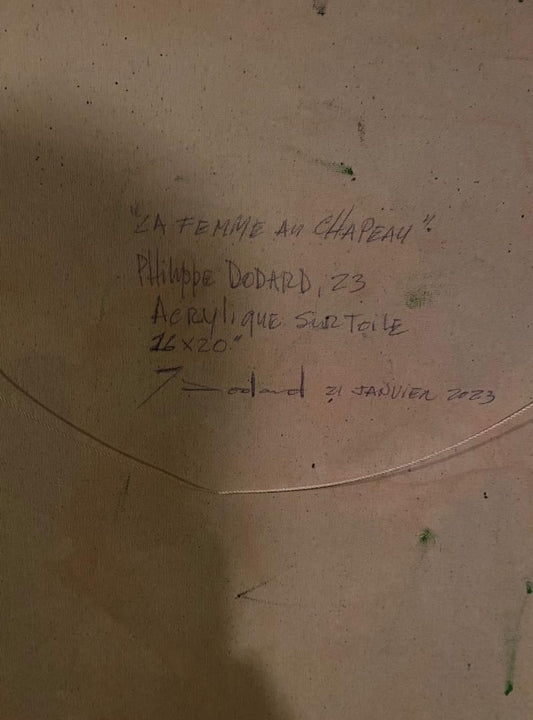 "LA FEMME AU CHAPEAU".
Philippe DODARD, 23
ACRYLIQUE SUR TOILE
16x20"
Dodard 21 JANVIER 2023